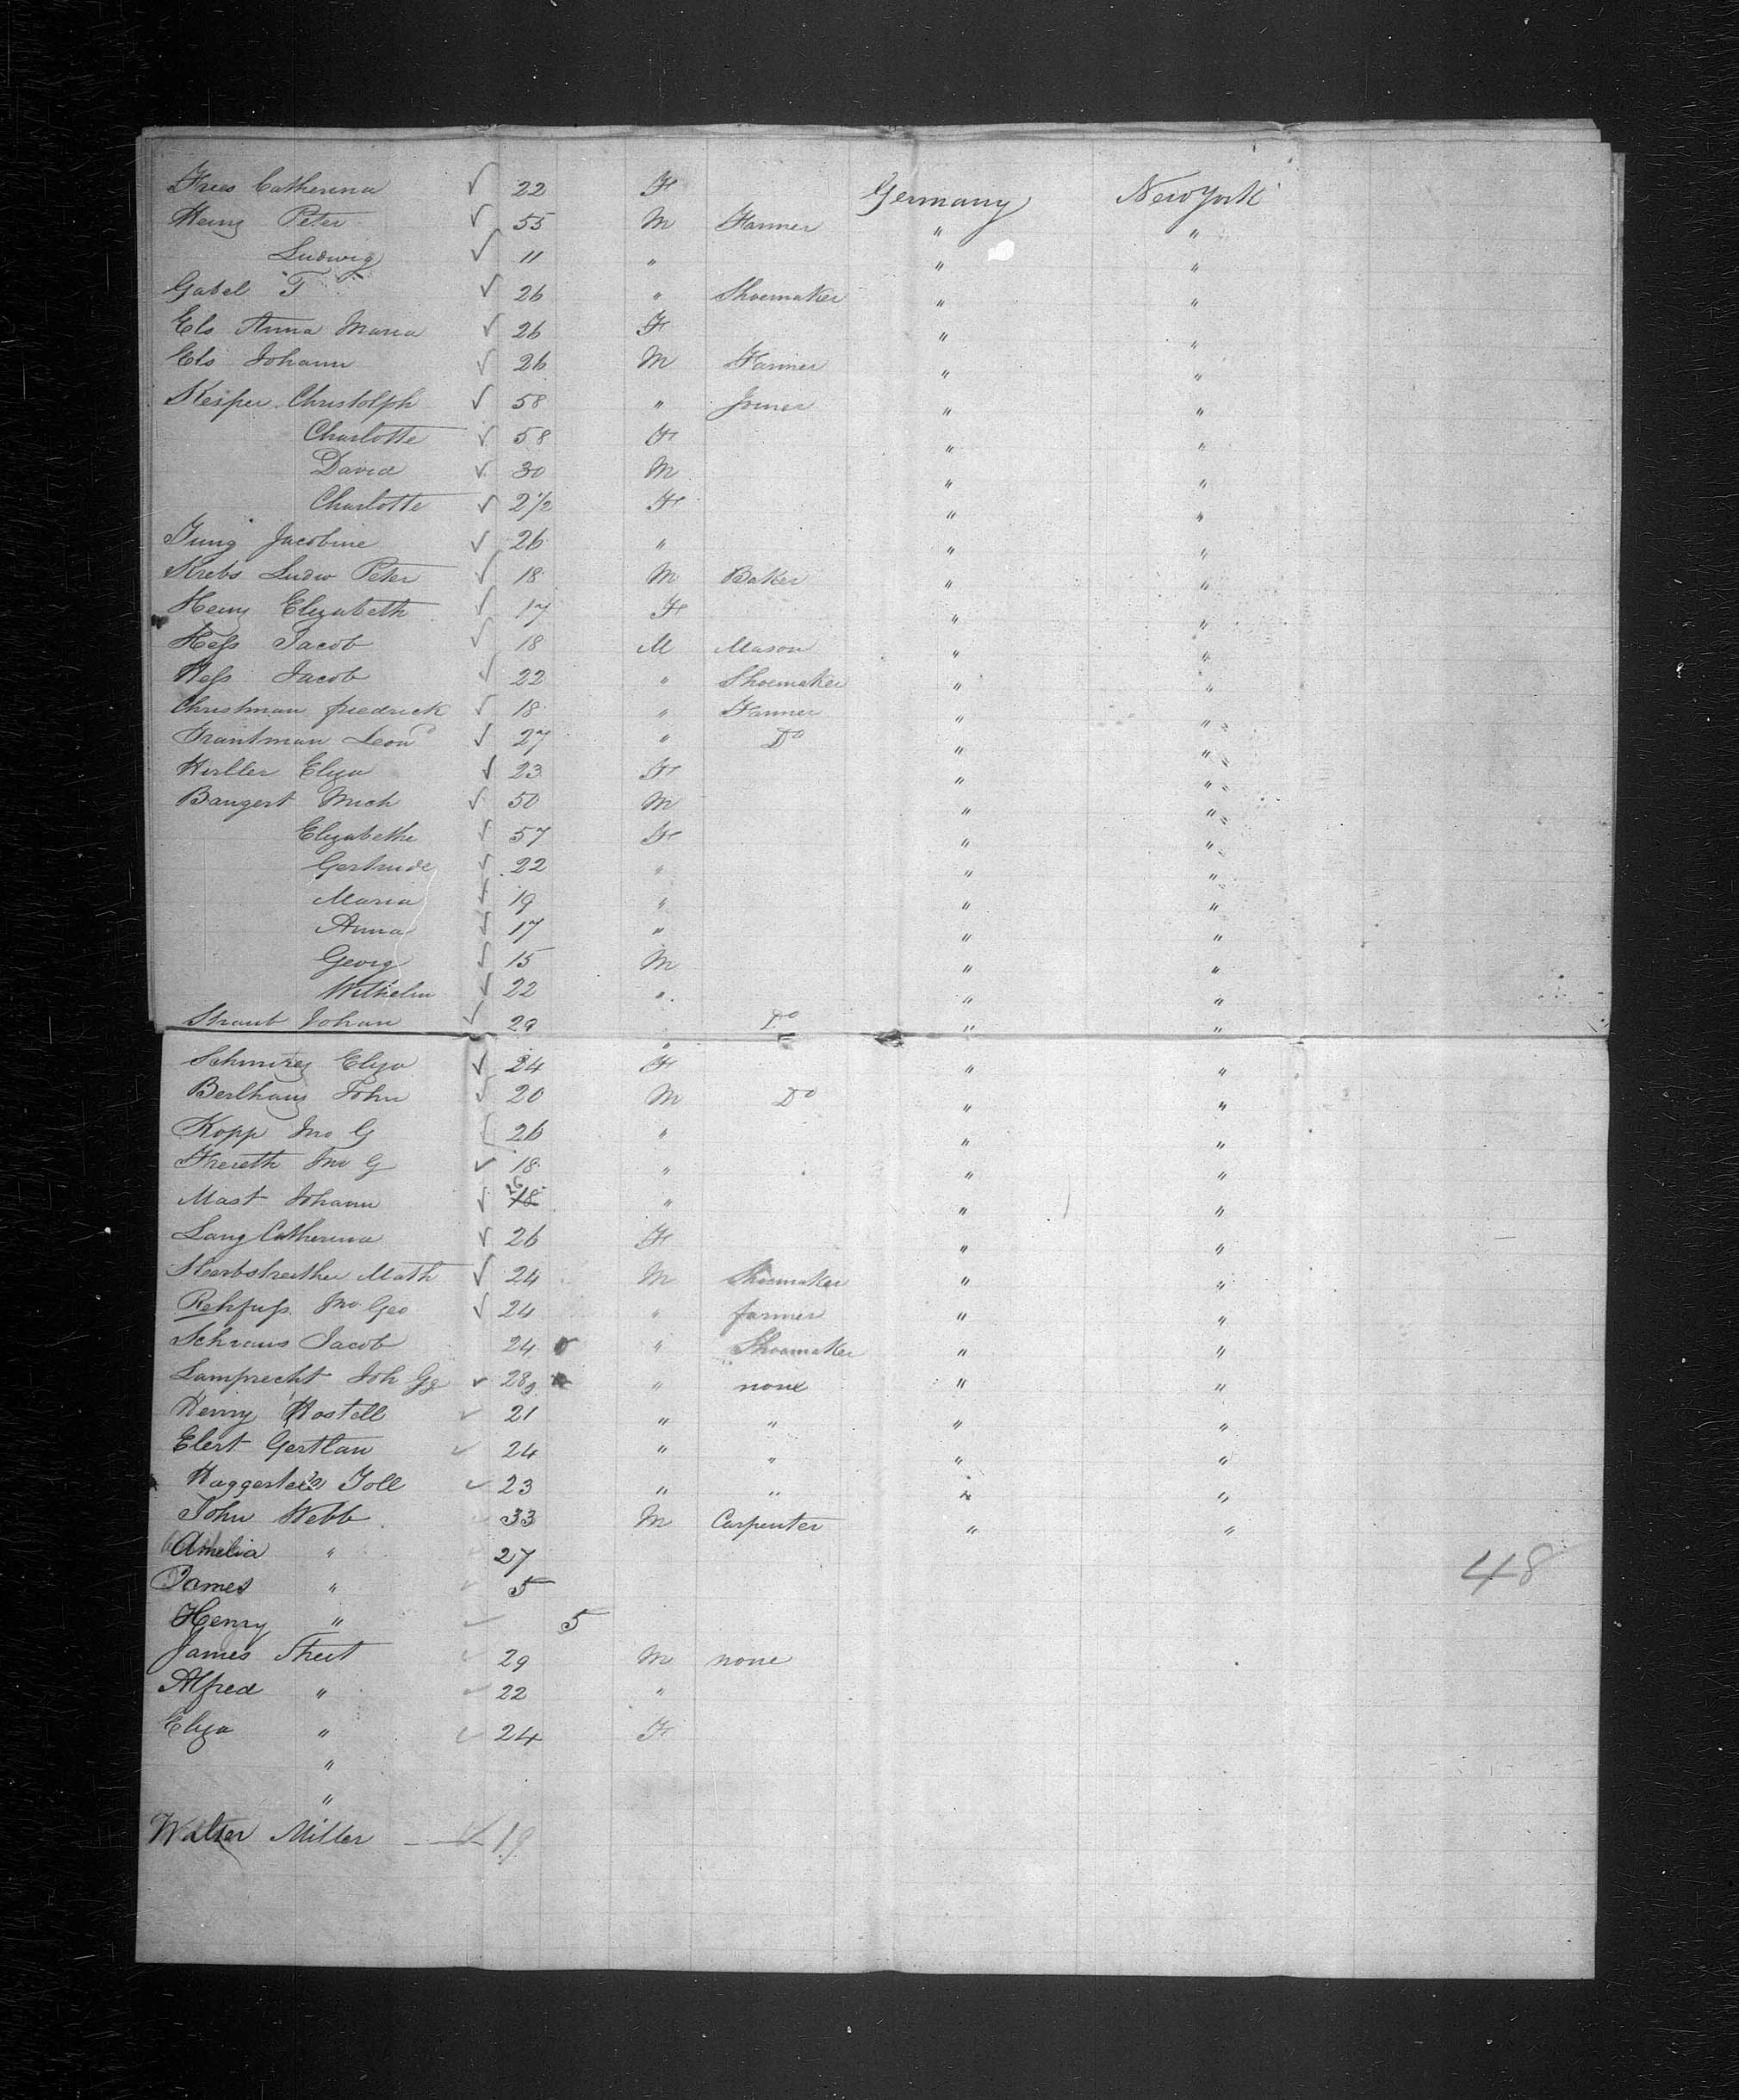 Frees Catherina √ 22 F Germany New York
Heinz Peter √ 55 M Farmer " "
Ludwig √ 11 " " "
Gabel F √ 26 " Shoemaker " "
Els Anna Maria √ 26 F " "
Els Johann √ 26 M Farmer " "
Keiper Christolph √ 58 " Joiner " "
Charlotte √ 58 F " "
David √ 30 M " "
Charlotte √ 2 1/2 F " "
Jung Jacobine √ 26 " " "
Krebs Ludw Peter √ 18 M Baker " "
Heinz Elizabeth √ 17 F " "
Hess Jacob √ 18 M Mason " "
Hess Jacob √ 22 " Shoemaker " "
Christman friedrick √ 18 " Farmer " "
Trantman Leond √ 27 " Do " "
Eliza √ 23 F " "
Bangert Mich √ 50 M " "
Elizabethe √ 57 F " "
Gertrude √ 22 " " "
Maria √ 19 " " "
Anna √ 17 " " "
Georg √ 15 M " "
Wilhelm √ 22 " " "
Straub Johan √ 29 " Do " "
Eliza √ 24 F " "
John √ 20 M Do " "
Kopp Jno G 26 " " "
Jno G √ 18 " " "
Mast Johann √ 18 26 " " "
Lang Catherina √ 26 F " "
Herbstreither Math √ 24 M Shoemaker " "
Rehfuss Jno Geo √ 24 " farmer " "
Schraus Jacob 24 " Shoemaker " "
Lamprecht Joh Gg √ 28 " none " "
Henry Hostell √ 21 " " " "
Elert Gertlan √ 24 " " " "
Toll √ 23 " " " "
John Webb √ 33 M Carpenter " "
Amelia " √ 27
James " √ 5 48
Henry " √ 5
James Street √ 29 M none
Alfred " √ 22 "
Eliza " √ 24 F
"
"
Walter Miller √ 19